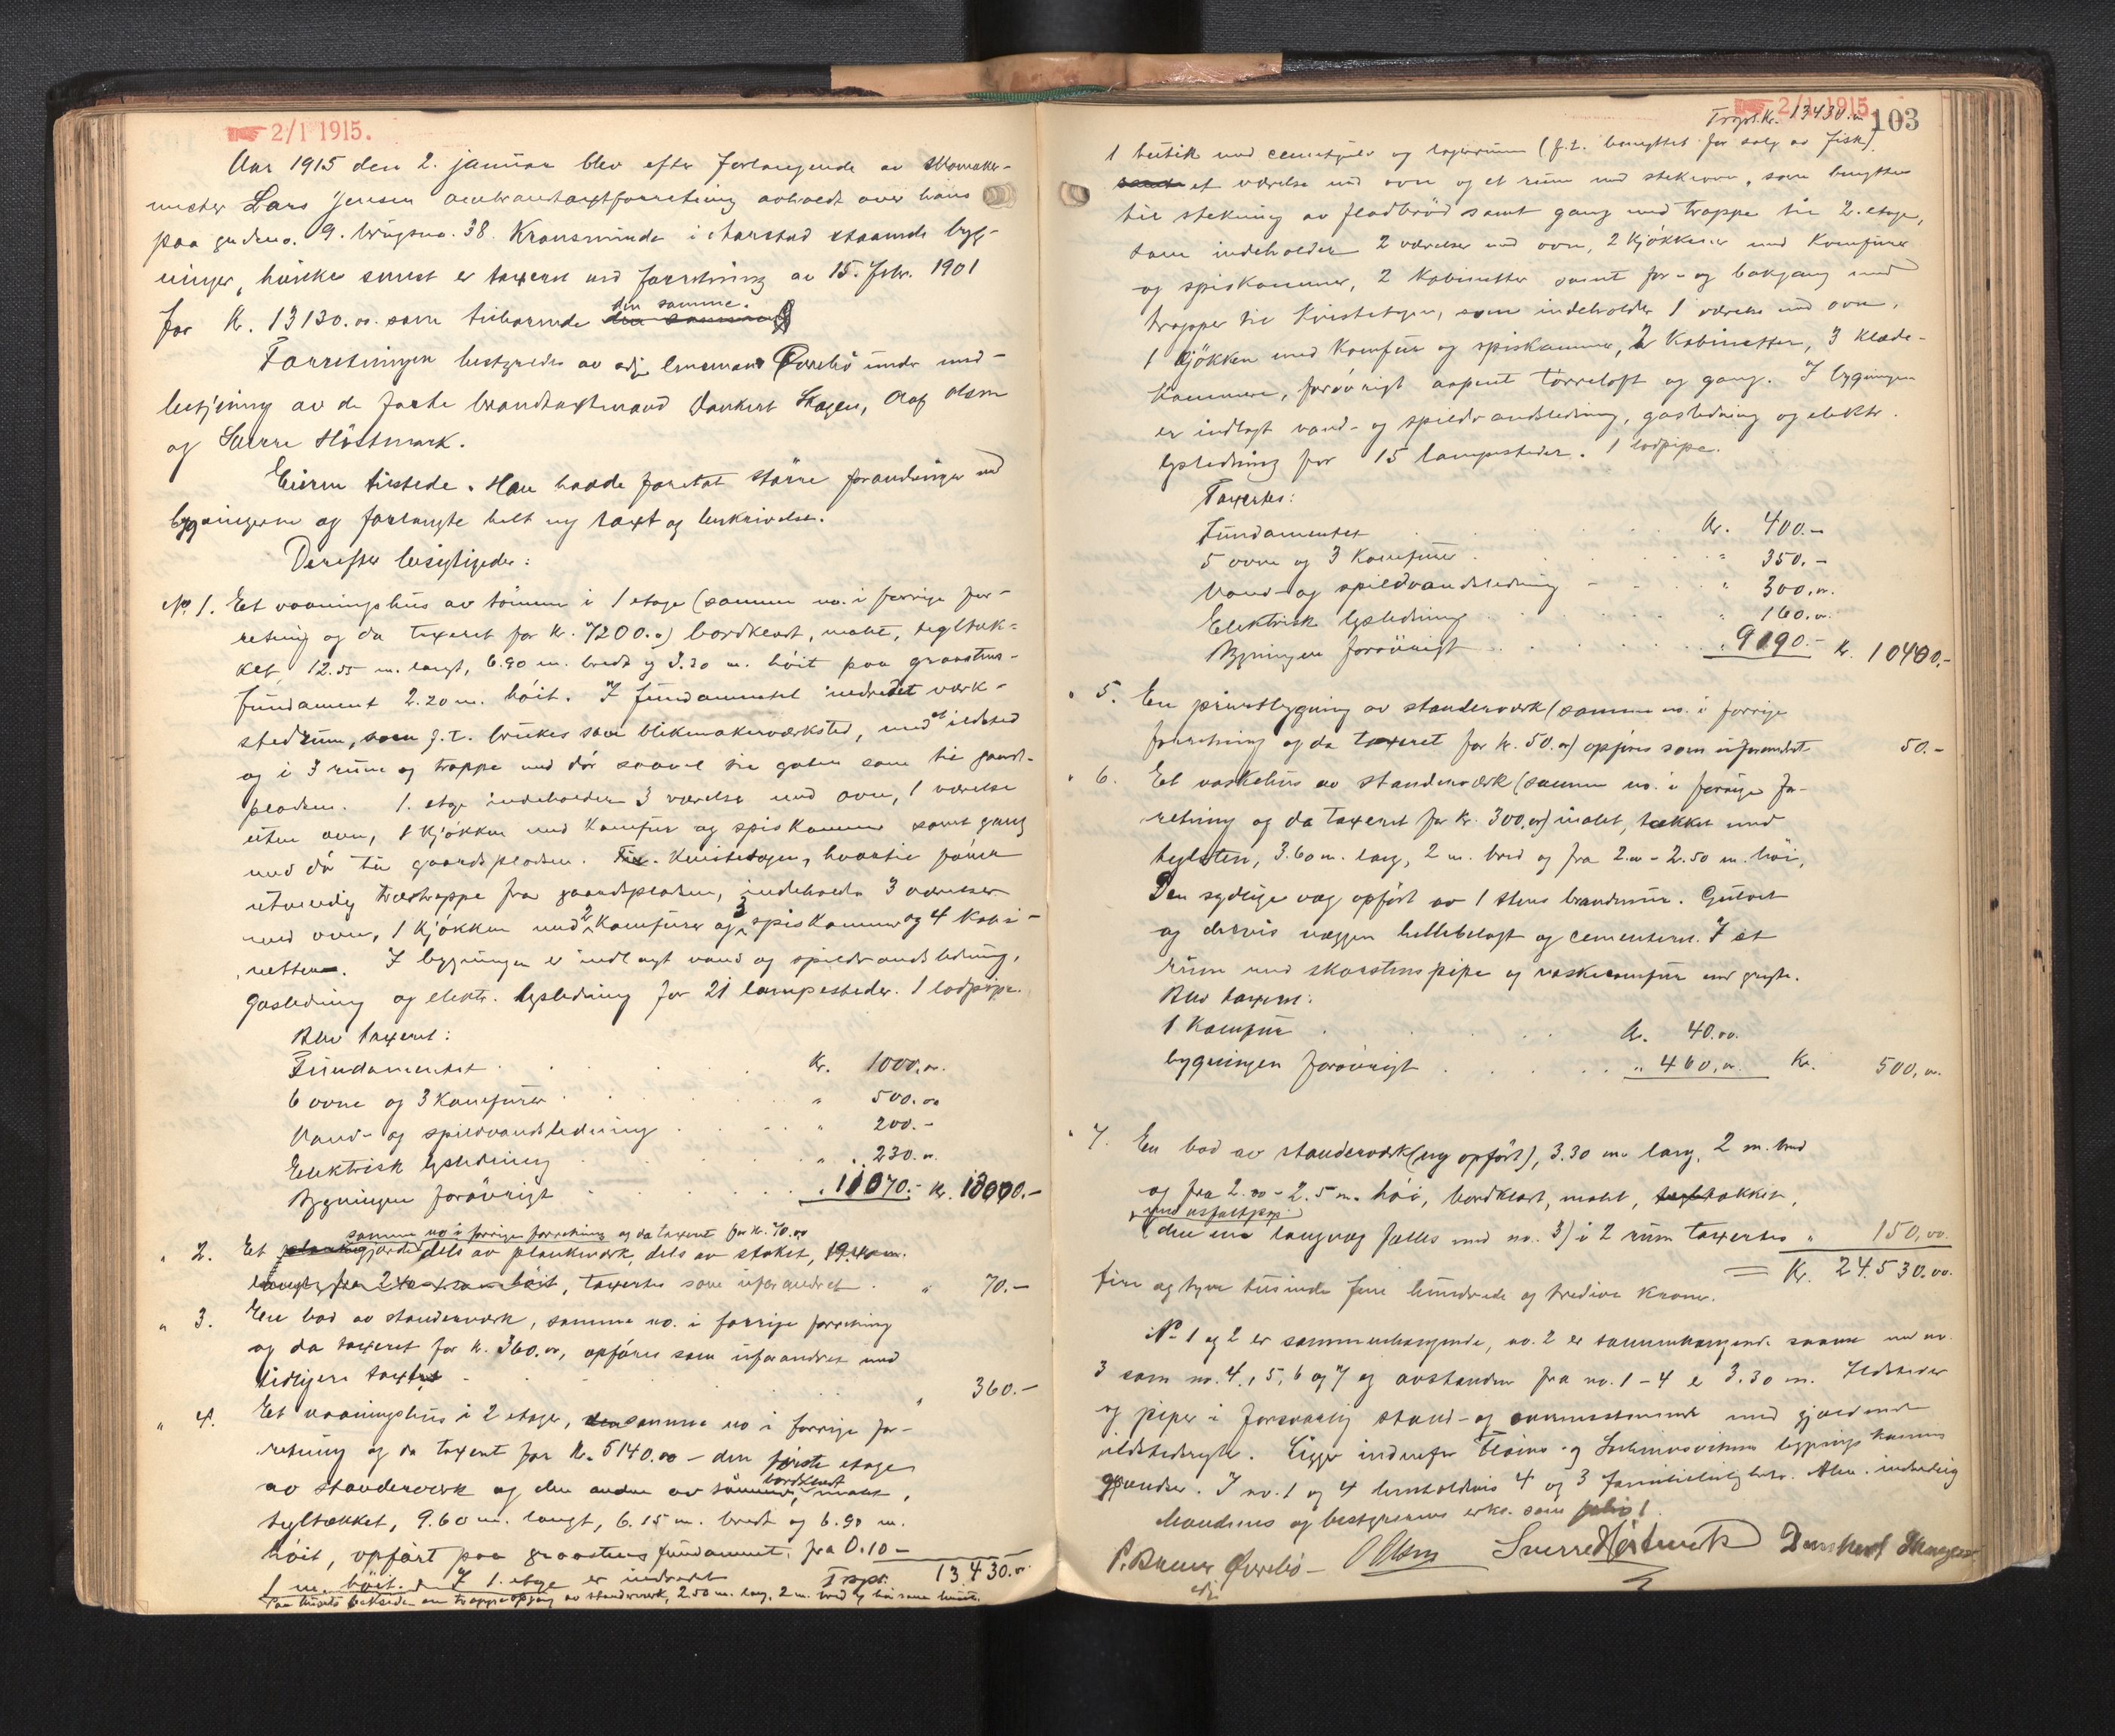 2/1 1915.
Aar 1915 den 2. januar blev efter forlangende av skomaker-
mester Lars Jensen ombrandtaxtforretning avholdt over hans
paa gaardsno. 9. bruksno. 38 Kransminde i Aarstad staaende byg-
ninger, hvilke senest er taxeret ved forretning av 15. febr. 1901
for Kr. 13130.00 som tilhørende den samme.
Forretningen bestyredes av adj. lensmand Øvrebø under med-
betjening av de faste brandtaxtmænd Dankert Skagen, Olaf Olsen
og Sverre Høstmark.
Eieren tilstede. Han hadde foretat større forandringer ved
bygningerne og forlangte helt ny taxt og beskrivelse.
Derefter besigtigedes:
No. 1. Et vaaningshus av tømmer i 1 etage (samme no. i forrige for-
retning og da taxeret for kr. 7200.00) bordklædt, malt, tegltæk-
ket, 12.55 m. langt, 6.90 m. bredt og 3.30 m. høit paa graastens-
fundament 2.20 m. høit. I fundamentet indredet verk-
stedrum, som f.t. brukes som blikmakerverksted, med et ildsted
og i 3 rum og trappe med dør saavel til gaten som til gaards-
pladsen. 1. etage indeholder 3 værelser med ovn, 1 værelse
uten ovn, 1 kjøkken med komfur og spiskammer samt gang
med dør til gaardspladsen. Kvistetagen, hvortil fører
utvendig trætrappe fra gaardspladsen, indeholder 3 værelser
med ovn, 1 kjøkken med 2 komfurer og 3 spiskammer og 4 kabi-
netter. I bygningen er indlagt vand og spildvandsledning,
gasledning og elektr. lysledning for 21 lampesteder. 1 lodpipe.
Blev taxeret:
Fundamentet . . . Kr. 1000.00
6 ovne og 3 komfurer . . . " 500.00
Vand- og spildvandsledning . . . " 200.-
Elektrisk lysledning . . . " 230.00
Bygningen forøvrigt . . . " 11070.- Kr. 13000.-
samme no. i forrige forretning og da taxeret for kr. 70.00
" 2. Et plankegjerde dels av plankeverk, dels av staket, 19.40 m.
langt, fra 2 høit, taxertes som uforandret . " 70.-
" 3. En bod av standerverk, samme no. i forrige forretning
og da taxeret for kr. 360.00, opføres som uforandret med
tidligere taxt . . . " 360.-
" 4. Et vaaningshus i 2 etager, samme no i forrige for-
retning og da taxert for kr. 5140.00 - den første etage
av standerverk og den anden av tømmer, bordklædt malt,
tegltækket, 9.60 m. langt, 6.15 m. bredt og 6.90 m.
høit, opført paa graastens fundament, fra 0.10 -
1 m. høit. I 1. etage er indredet Trpt. 13.430.00
Paa husets bakside en trappeopgang av standerverk, 2.50 m. lang, 2 m. bred og høi som huset.
2/1 1915.
103
Trpt. Kr. 13430.00
1 butik med cementgulv og lagerrum (f.t. benyttet for salg av fisk)
samt et værelse med ovn og et rum med stekeovn, som benyttes
til stekning av fladbrød samt gang med trappe til 2. etage,
som indeholder 2 værelser med ovn, 2 kjøkkener med komfurer
og spiskammer, 2 kabinetter samt for- og bakgang med
trapper til kvistetagen, som indeholder 1 værelse med ovn,
1 kjøkken med komfur og spiskammer, 2 kabinetter, 3 klæde-
kammere, forøvrigt aapent tørreloft og gang. I bygningen
er indlagt vand- og spildvandsledning, gasledning og elektr.
lysledning for 15 lampesteder. 1 lodpipe.
Taxertes:
Fundamentet . . . Kr. 400.-
5 ovne og 3 komfurer . . . " 350.-
Vand- og spildvandsledning . . . " 300.00
Elektrisk lysledning . . . " 160.00
Bygningen forøvrigt . . . " 9190.- Kr. 10400.-
" 5. En privetbygning av standerverk (samme no. i forrige
forretning og da taxeret for kr. 50.00) opføres som uforandret 50.-
" 6. Et vaskehus av standerverk (samme no. i forrige for-
retning og da taxeret for kr. 300.00) malet, tækket med
teglsten, 3.60 m. lang, 2 m. bred og fra 2.00 - 2.50 m. høi,
Den sydlige væg opført av 1 stens brandmur. Gulvet
og delvis væggen hellebelagt og cementeret. I et
rum med skorstenspipe og vaskekomfur med gryte.
Blev taxeret:
1 Komfur . . . Kr. 40.00
bygningen forøvrigt . . . " 460.00 Kr. 500.00
" 7. En bod av standerverk (ny opført), 3.30 m. lang, 2 m. bred
og fra 2.00 - 2.5 m. høi, bordklædt, malet, tækket,
med asfaltpap
(den ene langvæg fælles med no. 3) i 2 rum taxertes " 150.00
= Kr. 24.530.00
fire og tyve tusinde fem hundrede og tredive Kroner.
No. 1 og 2 er sammenhængende, no. 2 er sammenhængende saavel med no.
3 som no. 4, 5, 6 og 7 og avstanden fra no. 1 - 4 er 3.30 m. Ildsteder
og piper i forsvarlig stand og overensstemmende med gjældende
ildstedsregler. Ligger indenfor Fløens- og Solheimsvikens bygningskommunes
grændser. I no. 1 og 4 henholdsvis 4 og 3 familieleiligheter. Alm. indbydelig
Mændenes og bestyrerens erkl. som folio 1.
P. Øvrebø - O Olsen Sverre Høstmark Dankert Skagen
adj.